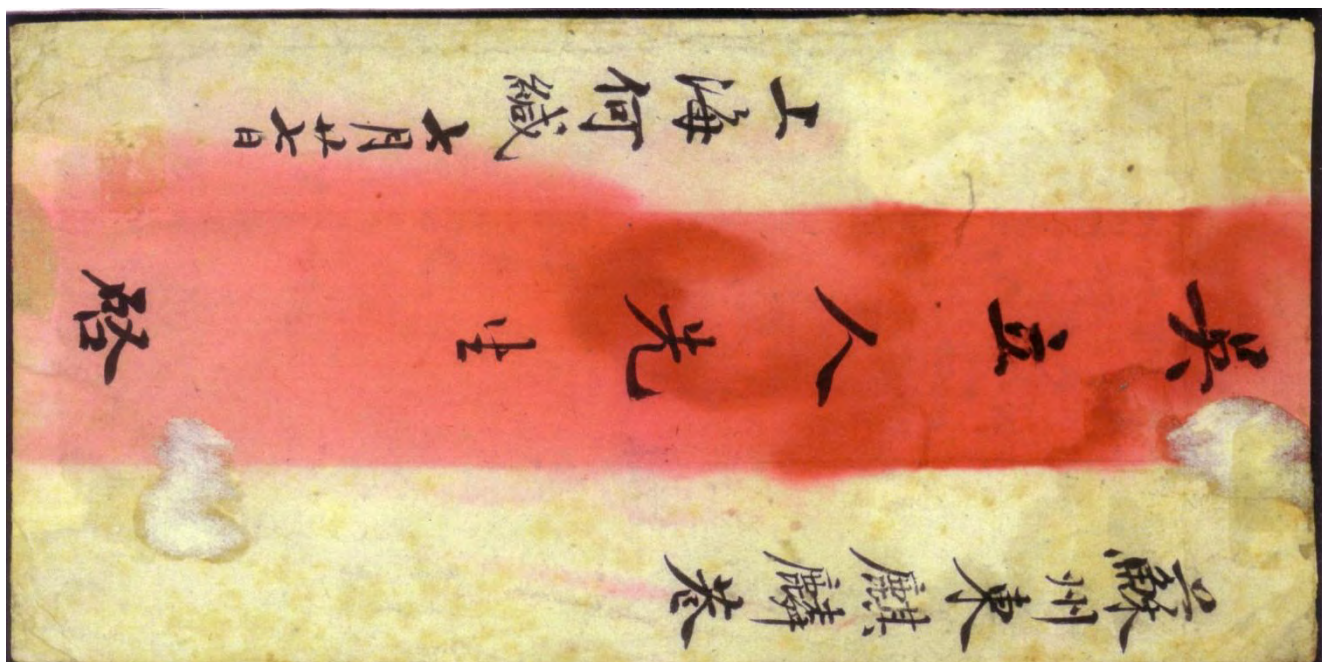 蘇州東麒麟巷
吳立人先生 啓
上海何緘 七月廿七日